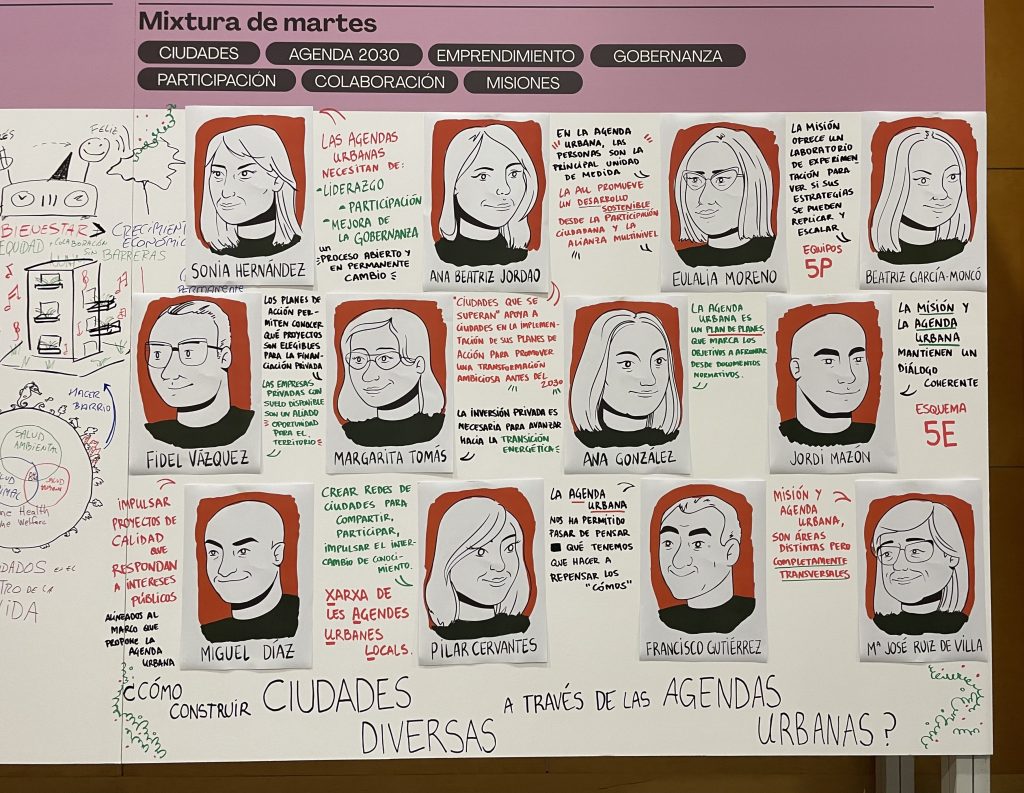 Mixtura de martes
CIUDADES
AGENDA 2030
EMPRENDIMIENTO
GOBERNANZA
PARTICIPACIÓN
COLABORACIÓN
MISIONES
FELIZ
BIENESTAR > CRECIMIENT
EQUIDAD + COLABORACIÓN
ECONÓMIC
SIN BARRERAS
PERMANENTE
HACER
BARRIO
SALUD
AMBIENTAL
SALUD
One Health
One Welfare
DADOS EN EL
TRO DE LA
VIDA
SONIA HERNÁNDEZ
LAS AGENDAS
URBANAS
NECESITAN DE:
-LIDERAZGO
-PARTICIPACIÓN
-MEJORA DE
LA GOBERNANZA
UN
PROCESO ABIERTO Y
EN PERMANENTE
CAMBIO
ANA BEATRIZ JORDAO
EN LA AGENDA
URBANA, LAS
PERSONAS SON LA
PRINCIPAL UNIDAD
DE MEDIDA
LA AU PROMUEVE
UN DESARROLLO
SOSTENIBLE
DESDE LA PARTICIPACIÓN
CIUDADANA Y LA
ALIANZA MULTINIVEL
EULALIA MORENO
LA MISIÓN
OFRECE UN
LABORATORIO
DE EXPERIMEN
TACIÓN PARA
VER SI SUS
ESTRATEGIAS
SE PUEDEN
REPLICAR Y
ESCALAR
EQUIPOS
5P
BEATRIZ GARCÍA-MONCÓ
FIDEL VÁZQUEZ
LOS PLANES DE
ACCIÓN PER-
MITEN CONOCER
QUÉ PROYECTOS
SON ELEGIBLES
PARA LA FINAN-
CIACIÓN PRIVADA
LAS EMPRESAS
PRIVADAS CON
SUELO DISPONIBLE
SON UN ALIADO
OPORTUNIDAD
PARA EL
TERRITORIO
MARGARITA TOMÁS
"CIUDADES QUE SE
SUPERAN" APOYA A
CIUDADES EN LA IMPLEMEN-
TACIÓN DE SUS PLANES DE
ACCIÓN PARA PROMOVER
UNA TRANSFORMACIÓN
AMBICIOSA ANTES DEL
2030
LA INVERSIÓN PRIVADA ES
NECESARIA PARA AVANZAR
HACIA LA TRANSICIÓN
ENERGÉTICA
ANA GONZÁLEZ
LA AGENDA
URBANA ES
UN PLAN DE PLANES,
QUE MARCA LOS
OBJETIVOS A AFRONTAR
DESDE DOCUMENTOS
NORMATIVOS.
JORDI MAZON
LA MISIÓN Y
LA AGENDA
URBANA
MANTIENEN UN
DIÁLOGO
COHERENTE
ESQUEMA
5E
IMPULSAR
PROYECTOS DE
CALIDAD QUE
RESPONDAN
A INTERESES
PÚBLICOS
ALINEADOS AL
MARCO QUE
PROPONE LA
AGENDA
URBANA
MIGUEL DÍAZ
CREAR REDES DE
CIUDADES PARA
COMPARTIR,
PARTICIPAR,
IMPULSAR EL INTER-
CAMBIO DE CONOCI-
MIENTO.
XARXA DE
LES AGENDES
URBANES
LOCALS.
PILAR CERVANTES
LA AGENDA
URBANA
NOS HA PERMITIDO
PASAR DE PENSAR
QUÉ TENEMOS
QUE HACER A
REPENSAR LOS
"CÓMOS"
FRANCISCO GUTIÉRREZ
MISIÓN Y
AGENDA
URBANA,
SON ÁREAS
DISTINTAS PERO
COMPLETAMENTE
TRANSVERSALES
Mª JOSÉ RUIZ DE VILLA
¿CÓMO
CONSTRUIR CIUDADES
DIVERSAS
A TRAVÉS DE LAS AGENDAS
URBANAS?